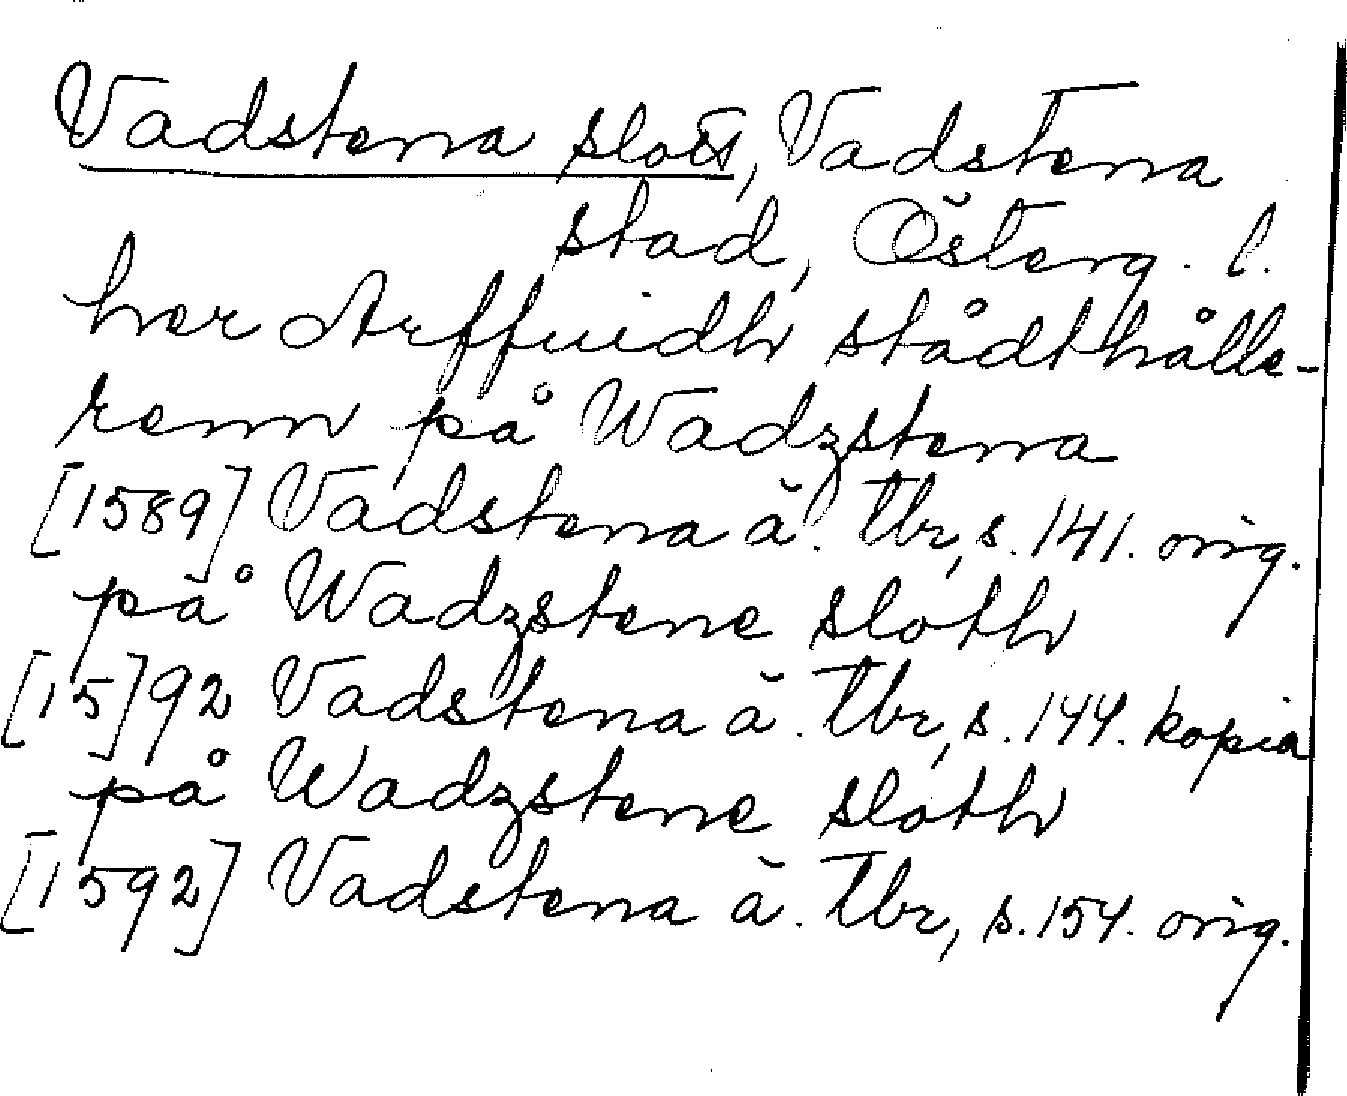 Vadstena slott, Vadstena
stad, Österg. l.
her Arffuidh stådthålle-
renn på Wadzstena
[1589] Vadstena ä. tbr, s. 141. orig.
på Wadzstene sloth
[15]92 Vadstena ä. tbr, s. 144. kopia
på Wadzstene sloth
[1592] Vadstena ä. tbr, s. 154. orig.